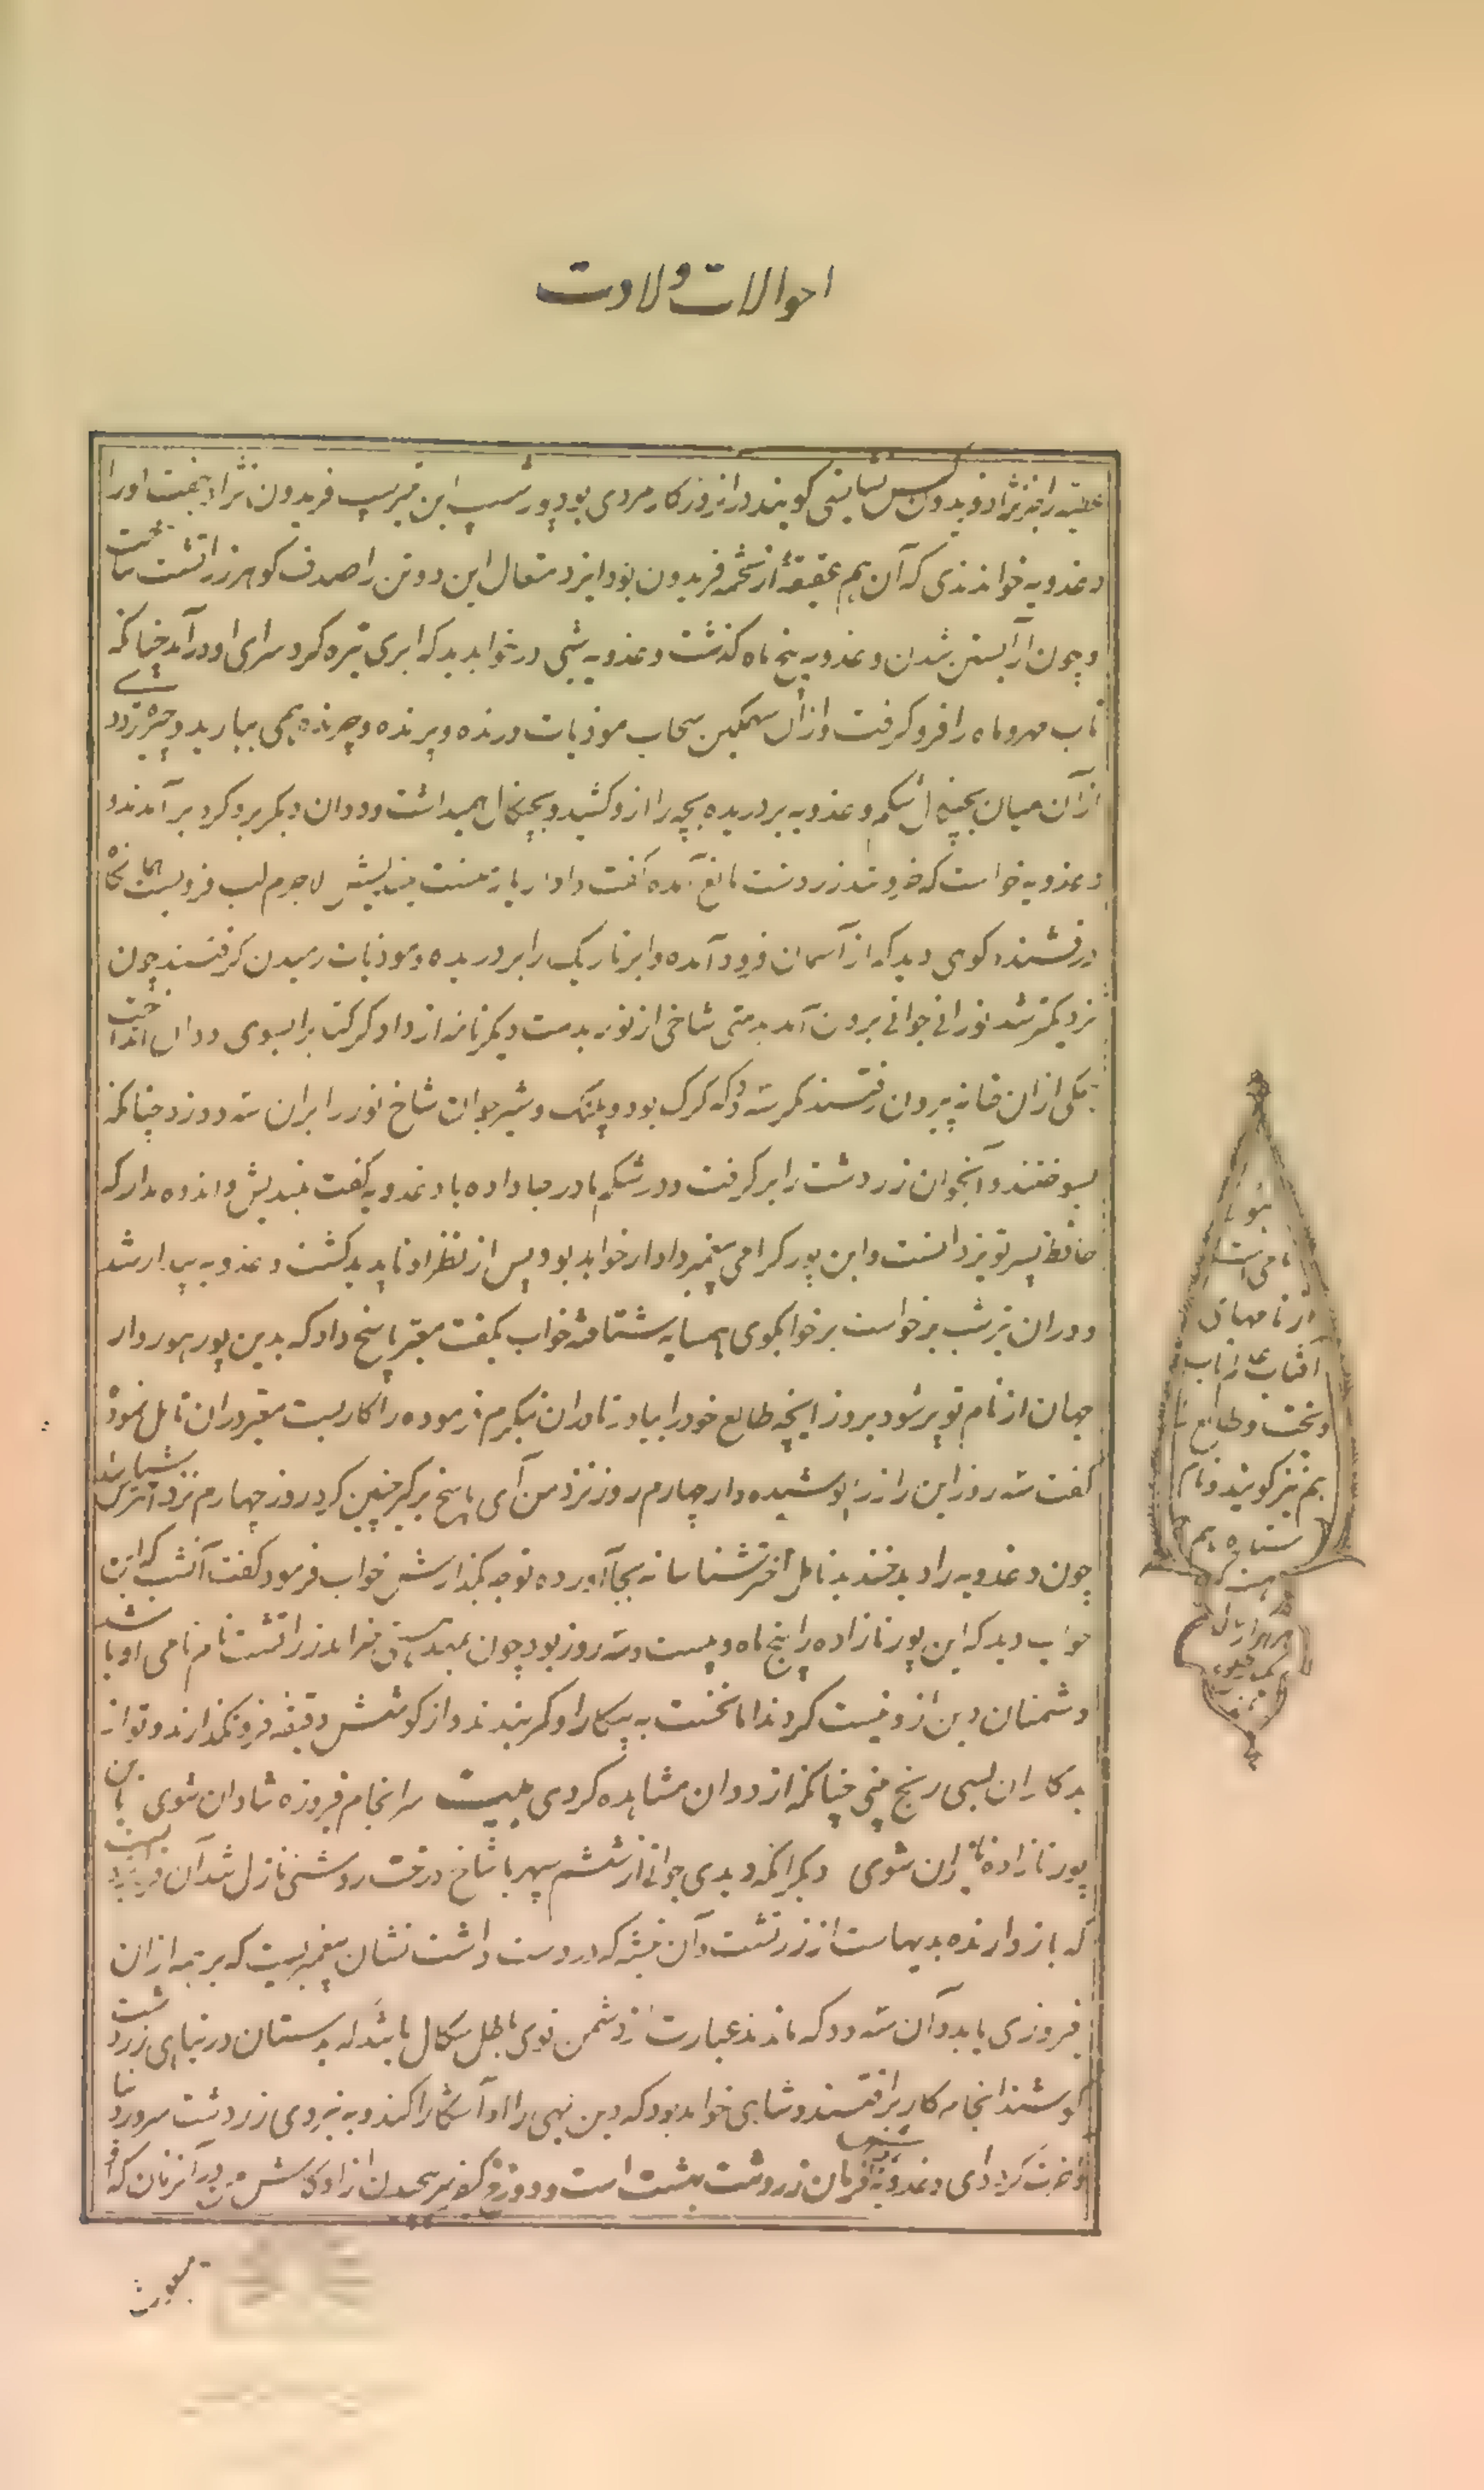 احوالات ولادت
گویند در آنروزگار مردی بود پورشسپ ابن پتیرسپ فریدون نژاد جفت اورا
دغدویه خواندندی که آن هم عفیفهٔ از تخمه فریدون بود ایزد متعال این دو تن را صدف کوهر زراتشت ساخت
و چون از آبستن شدن دغدویه پنج ماه کذشت دغدویه شبی در خواب دید که ابری تیره کرد سرای او در آمد چنانکه
تاب مهر و ماه را فرو کرفت و از آن سهمکین سحاب موذیات درنده و پرنده و چرنده همی ببارید و چیره تر ددی
از آن میان بچنکال شکم دغدویه بردریده بچه را ازو کشید و بچنکال همیداشت و ددان دیکر برو کرد برآمدند و
دغدویه خواست که خروشد زردشت مانع آمده کفت دادار یار منست میندیش لاجرم لب فرو بست آنکاه
درفشنده کوهی دید که از آسمان فرود آمده و ابر تاریک را بردریده و موذیات رمیدن کرفتند چون
نزدیکتر شد نورانی جوانی برون آمد بدستی شاخی از نور بدست دیکر نامه از دادکر کتاب را بسوی ددان انداخت
یکی از آن خانه بیرون رفتند مکر سه دد که کرک بود و پلنک و شیر جوان شاخ نور را بر آن سه دد زد چنانکه
بسوختند و آنجوان زردشت را برکرفت و در شکم مادر جا داده با دغدویه کفت میندیش و اندوه مدار که
حافظ پسر تو یزدانست و این پور کرامی پیغمبر دادار خواهد بود پس از نظر او ناپدید کشت دغدویه بیدار شد
و در آن تیره شب برخواست بر خوابکوی همسایه شتافته خواب بکفت معبر پاسخ داد که بدین پور هور وار
جهان از نام تو پر شود برو زایچه طالع خود را بیاور تا در آن بنکرم فرموده را کار بست معبر در آن تامل نموده
کفت سه روز این راز را پوشیده دار چهارم روز نزد من آی پاسخ برکیر چنین کرد روز چهارم نزد اخترشناس شد
چون دغدویه را دید خندید تامل اخترشناسانه بجا آورده توجه بکذارش خواب فرمود کفت آنشب که این
خواب دید که این پور نازاده را پنج ماه و بیست و سه روز بود چون بمهد هستی خرامد زراتشت نام نامی او باشد
دشمنان دین ازو نیست کردند اما نخست به پیکار او کمر بندند و از کوشش دقیقه فرو نکذارند و تو از
بدکاران بسی رنج بینی چنانکه از ددان مشاهده کردی بیت سرانجام فیروزه شادان شوی باین
پور نازاده نازان شوی دیکر آنکه دیدی جوانی از ششم سپهر با شاخ درخت روشنی نازل شد آن فر ایزدیست
که باز دارنده بدیهاست از زرتشت و آن نبشته که در دست داشت نشان پیغمبریست که بر همه از آن
فیروزی یابد و آن سه دد که ماندند عبارت از دشمن قوی باطل سکال باشد که بدستان در تباهی زردشت
کوشند انجامه کار برافتند و شاهی خواهد بود که دین بهی را او آشکارا کند و به نیروی زردشت سرور دنیا
و آخرت کردد ای دغدویه فرمان زردشت بهشت است و دوزخ کیفر سرپیچیدن از او کاش من در آن زمان که او
نامی است
از نامهای
آفتاب
و بخت و طالع
هم نیز کویند و نام
ستاره هم
هست که